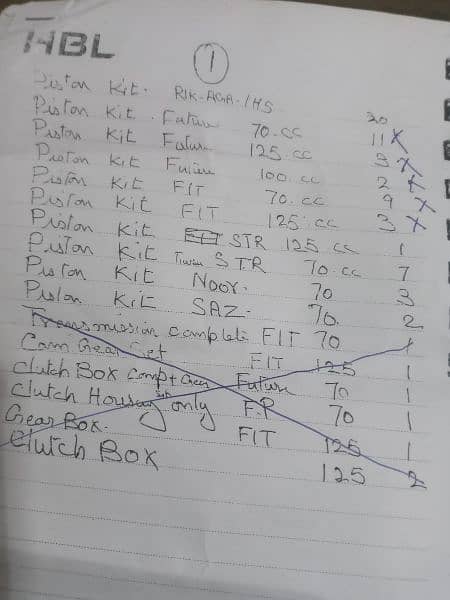 HBL
1
Piston Kit. RIK-AGA-/HS 20
Piston Kit. Future 70.cc 11 X
Piston Kit Future 125.cc 9 X
Piston Kit Future 100.cc 2 X
Piston Kit FIT 70.cc 9 X
Piston Kit FIT 125.cc 3 X
Piston Kit STR 125 cc 1
Piston Kit STR 70.cc 7
Piston Kit Noor. 70 3
Piston Kit SAZ. 70 2
Transmission Complete FIT 70 1
Cam Gear Set FIT 125 1
Clutch Box Comp+Gear Future 70 1
Clutch Housing only F.P 70 1
Gear Box. FIT 125 1
Clutch Box 125 2